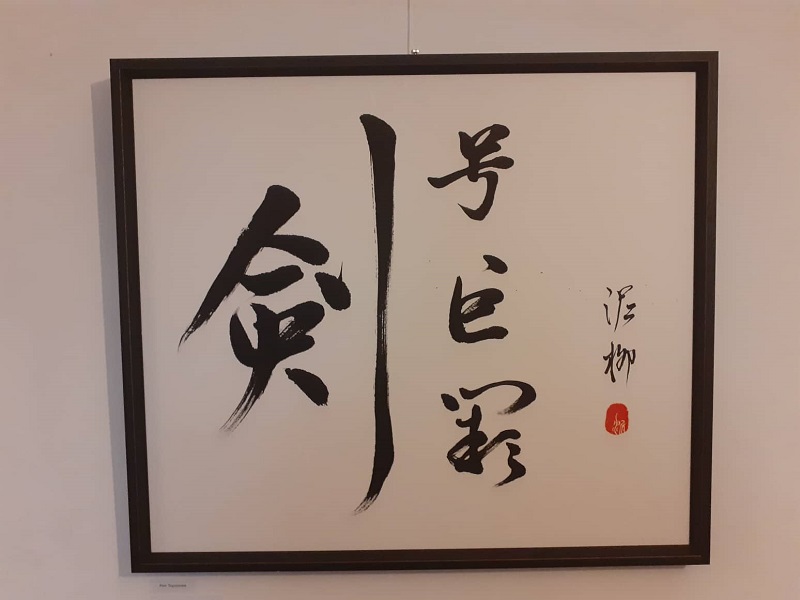 剣
号巨闕
柳